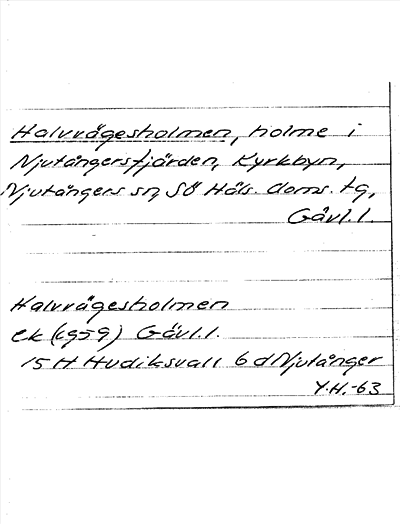 Halvvägesholmen, holme i
Njutångersfjärden, Kyrkbyn,
Njutångers sn, SÖ Häls. doms. tg,
Gävl.l.
Halvvägesholmen
ek (1959) Gävl.l.
15 H Hudiksvall 6 d Njutånger
Y.H.-63